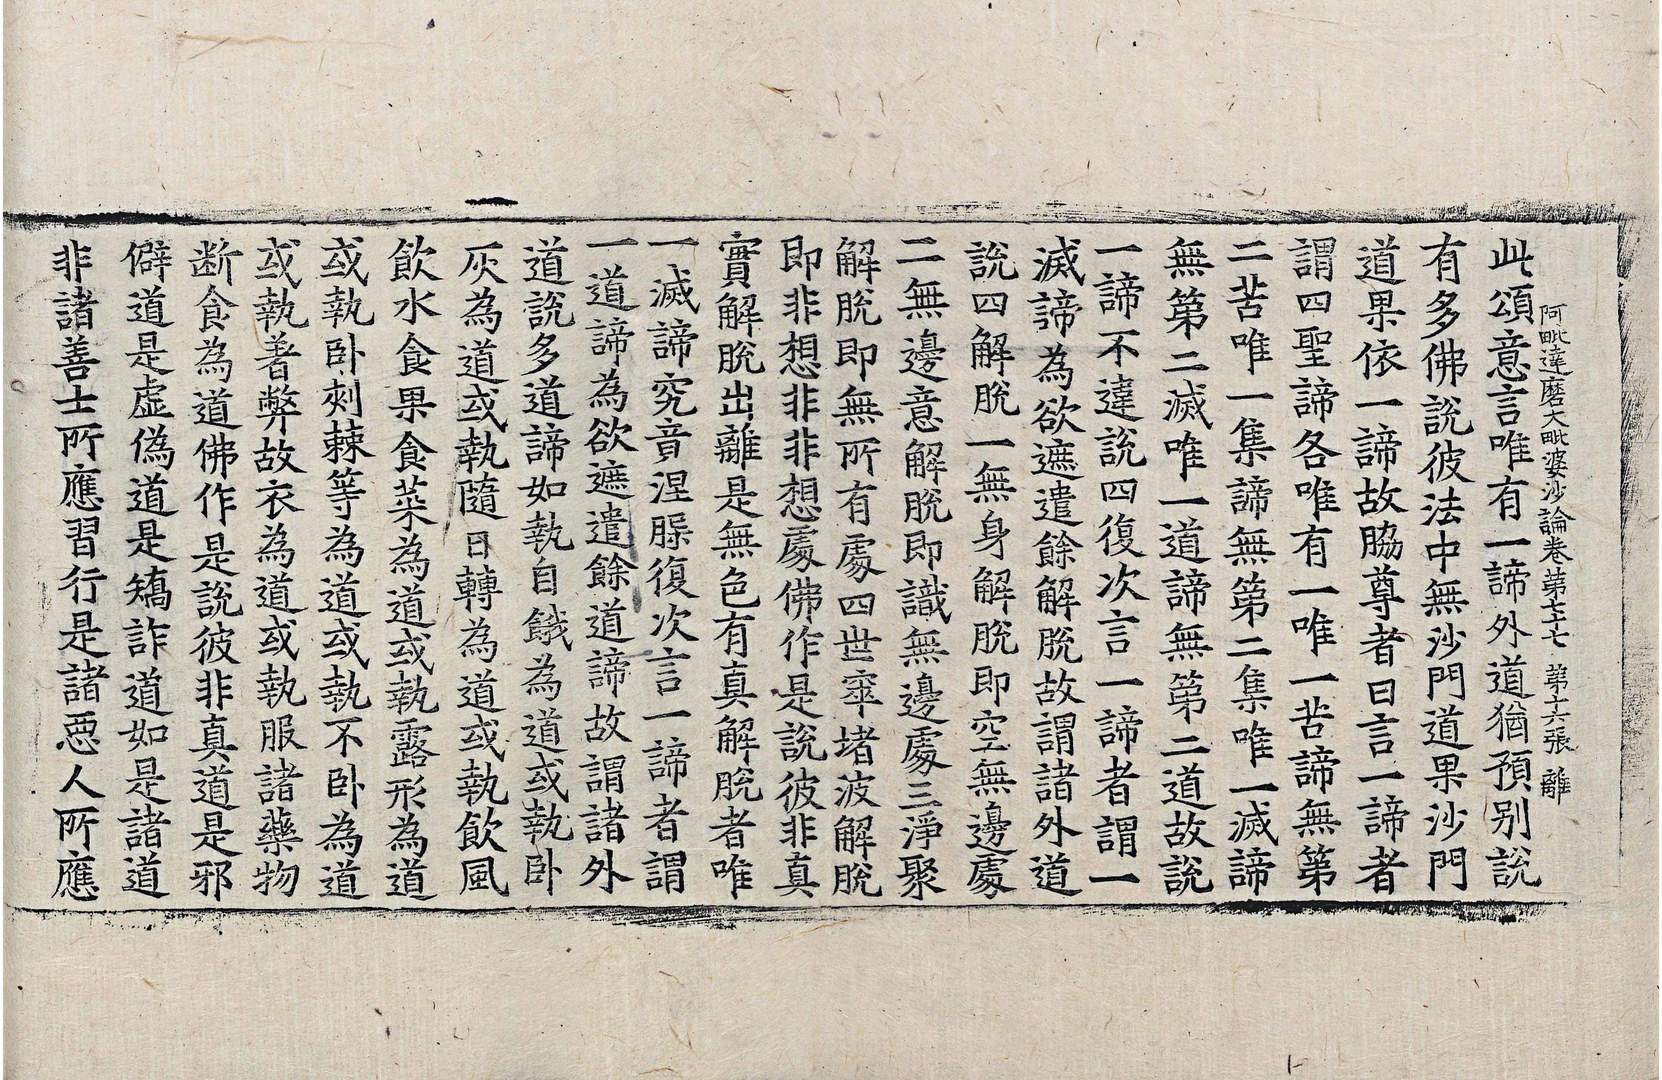 阿毗達磨大毗婆沙論卷第七十七 第十六張 離
此頌意言唯有一諦外道猶預别說
有多佛說彼法中無沙門道果沙門
道果依一諦故脇尊者曰言一諦者
謂四聖諦各唯有一唯一苦諦無第
二苦唯一集諦無第二集唯一滅諦
無第二滅唯一道諦無第二道故說
一諦不違說四復次言一諦者謂一
滅諦為欲遮遣餘解脫故謂諸外道
說四解脫一無身解脫即空無邊處
二無邊意解脫即識無邊處三淨聚
解脫即無所有處四世窣堵波解脫
即非想非非想處佛作是說彼非真
實解脫出離是無色有真解脫者唯
一滅諦究竟涅槃復次言一諦者謂
一道諦為欲遮遣餘道諦故謂諸外
道說多道諦如執自餓為道或執卧
灰為道或執隨日轉為道或執飲風
飲水食果食菜為道或執露形為道
或執卧刺棘等為道或執不卧為道
或執著弊故衣為道或執服諸藥物
断食為道佛作是說彼非真道是邪
僻道是虛偽道是矯詐道如是諸道
非諸善士所應習行是諸惡人所應